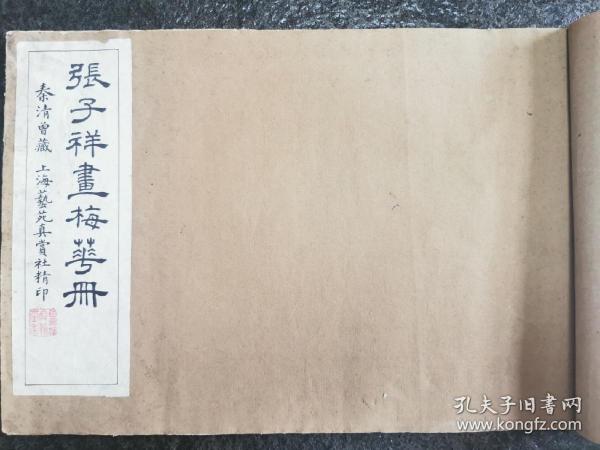 張子祥畫梅華冊
秦清曾藏 上海藝苑真賞社精印
孔夫子旧书网
www.kongfz.com